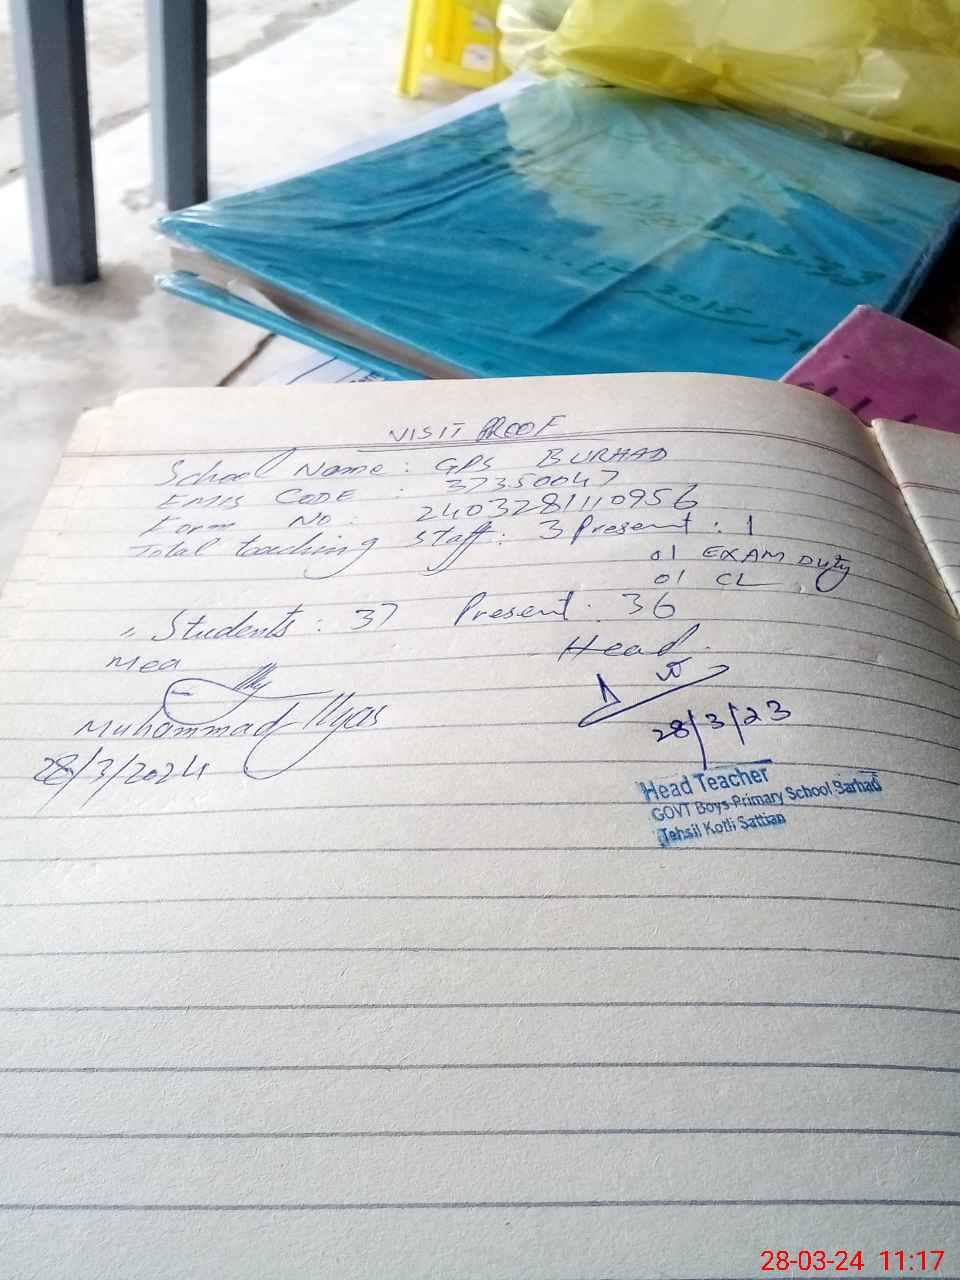 2015
VISIT PROOF
School Name : GPS BURHAD
EMIS CODE : 37350047
Form No : 2403281110956
Total teaching staff : 3 Present : 1
01 EXAM Duty
01 CL
〃 Students : 37 Present : 36
Mea
Head
Muhammad Ilyas
28/3/2024
28/3/23
Head Teacher
GOVT Boys Primary School Sarhad
Tehsil Kotli Sattian
28-03-24 11:17